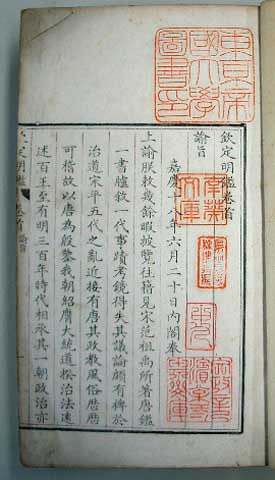 欽定明鑑卷首
諭旨
嘉慶十八年六月二十日內閣奉
上諭朕敕幾餘暇披覽往籍見宋范祖禹所著唐鑑
一書臚敘一代事蹟考鏡得失其議論頗有裨於
治道宋平五代之亂近接有唐其政教風俗曆曆
可稽故以唐為殷鑒我朝紹膺大統道揆治法遠
述百王至有明三百年時代相承其一朝政治亦
定明鑑 卷首 諭旨
東京帝
國大學
圖書印
南葵
文庫